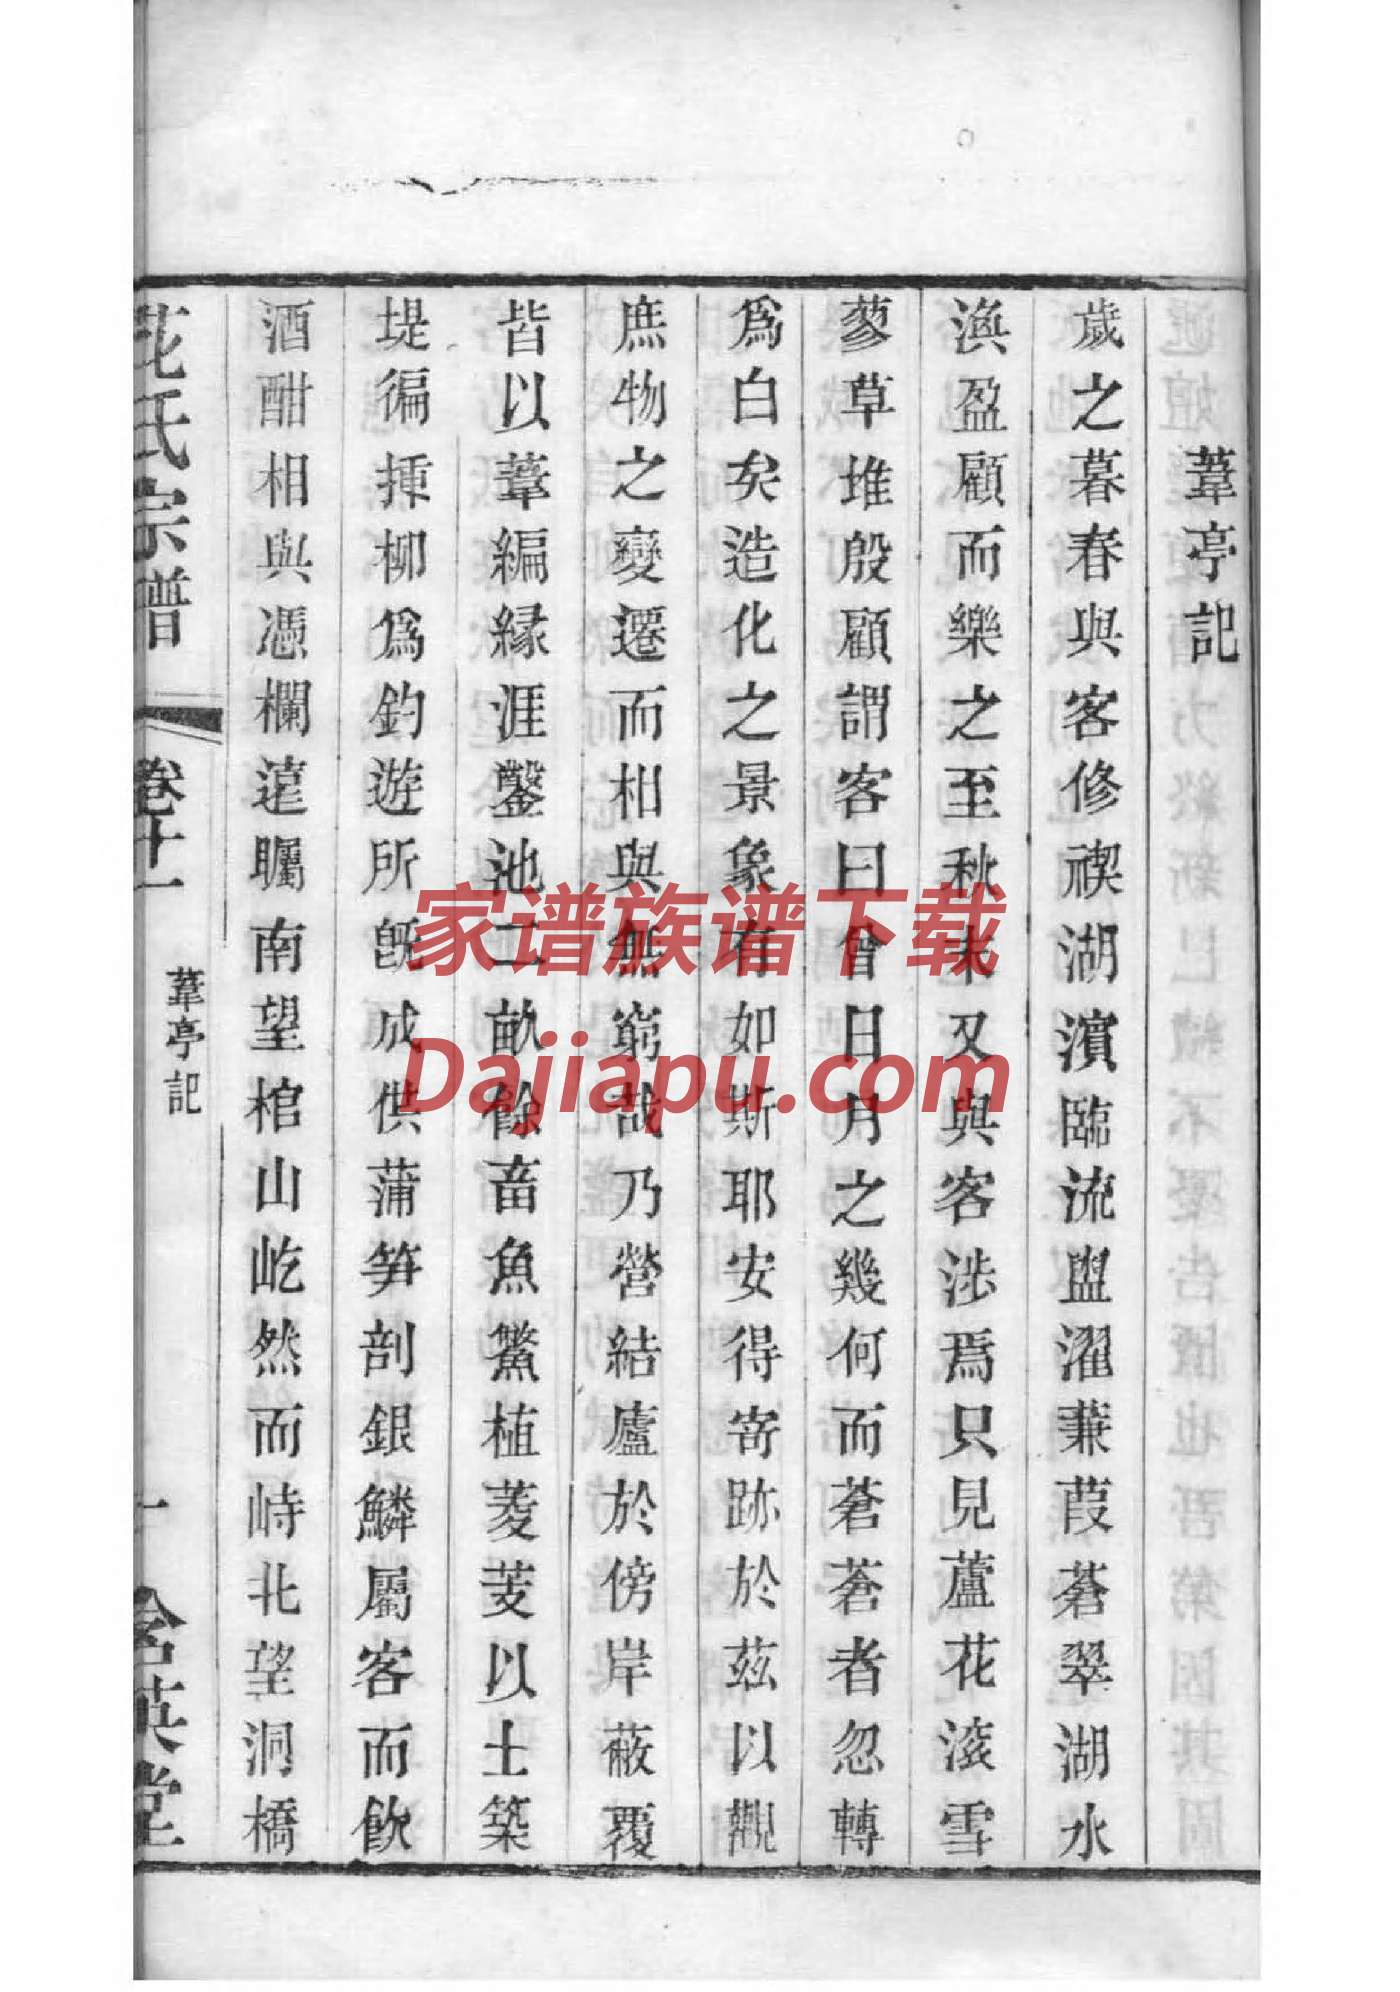 葦亭記
歲之暮春與客修禊湖濱臨流盥濯蒹葭蒼翠湖水
渙盈顧而樂之至秋末又與客涉焉只見蘆花滚雪
蓼草堆殷顧謂客曰曾日月之幾何而蒼蒼者忽轉
爲白矣造化之景象有如斯耶安得寄跡於茲以觀
庶物之變遷而相與無窮哉乃營結廬於傍岸蔽覆
皆以葦編緣涯鑿池二畝餘畜魚鱉植菱芰以土築
堤徧揷柳爲釣遊所旣成供蒲笋剖銀鱗屬客而飲
酒酣相與憑欄遠矚南望棺山屹然而峙北望洞橋
氏宗譜
卷十一
葦亭記
一
含英堂
家谱族谱下载
Dajiapu.com